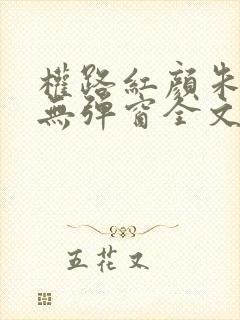 權路紅顏朱
無彈窗全文
五花又